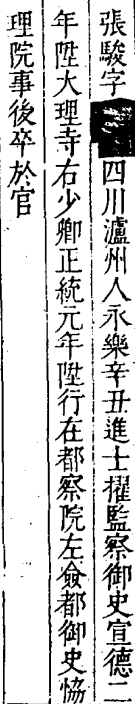 張駿字四川瀘州人永樂辛丑進士擢監察御史宣德二
年陞大理寺右少卿正統元年陞行在都察院左僉都御史恊
理院事後卒於官